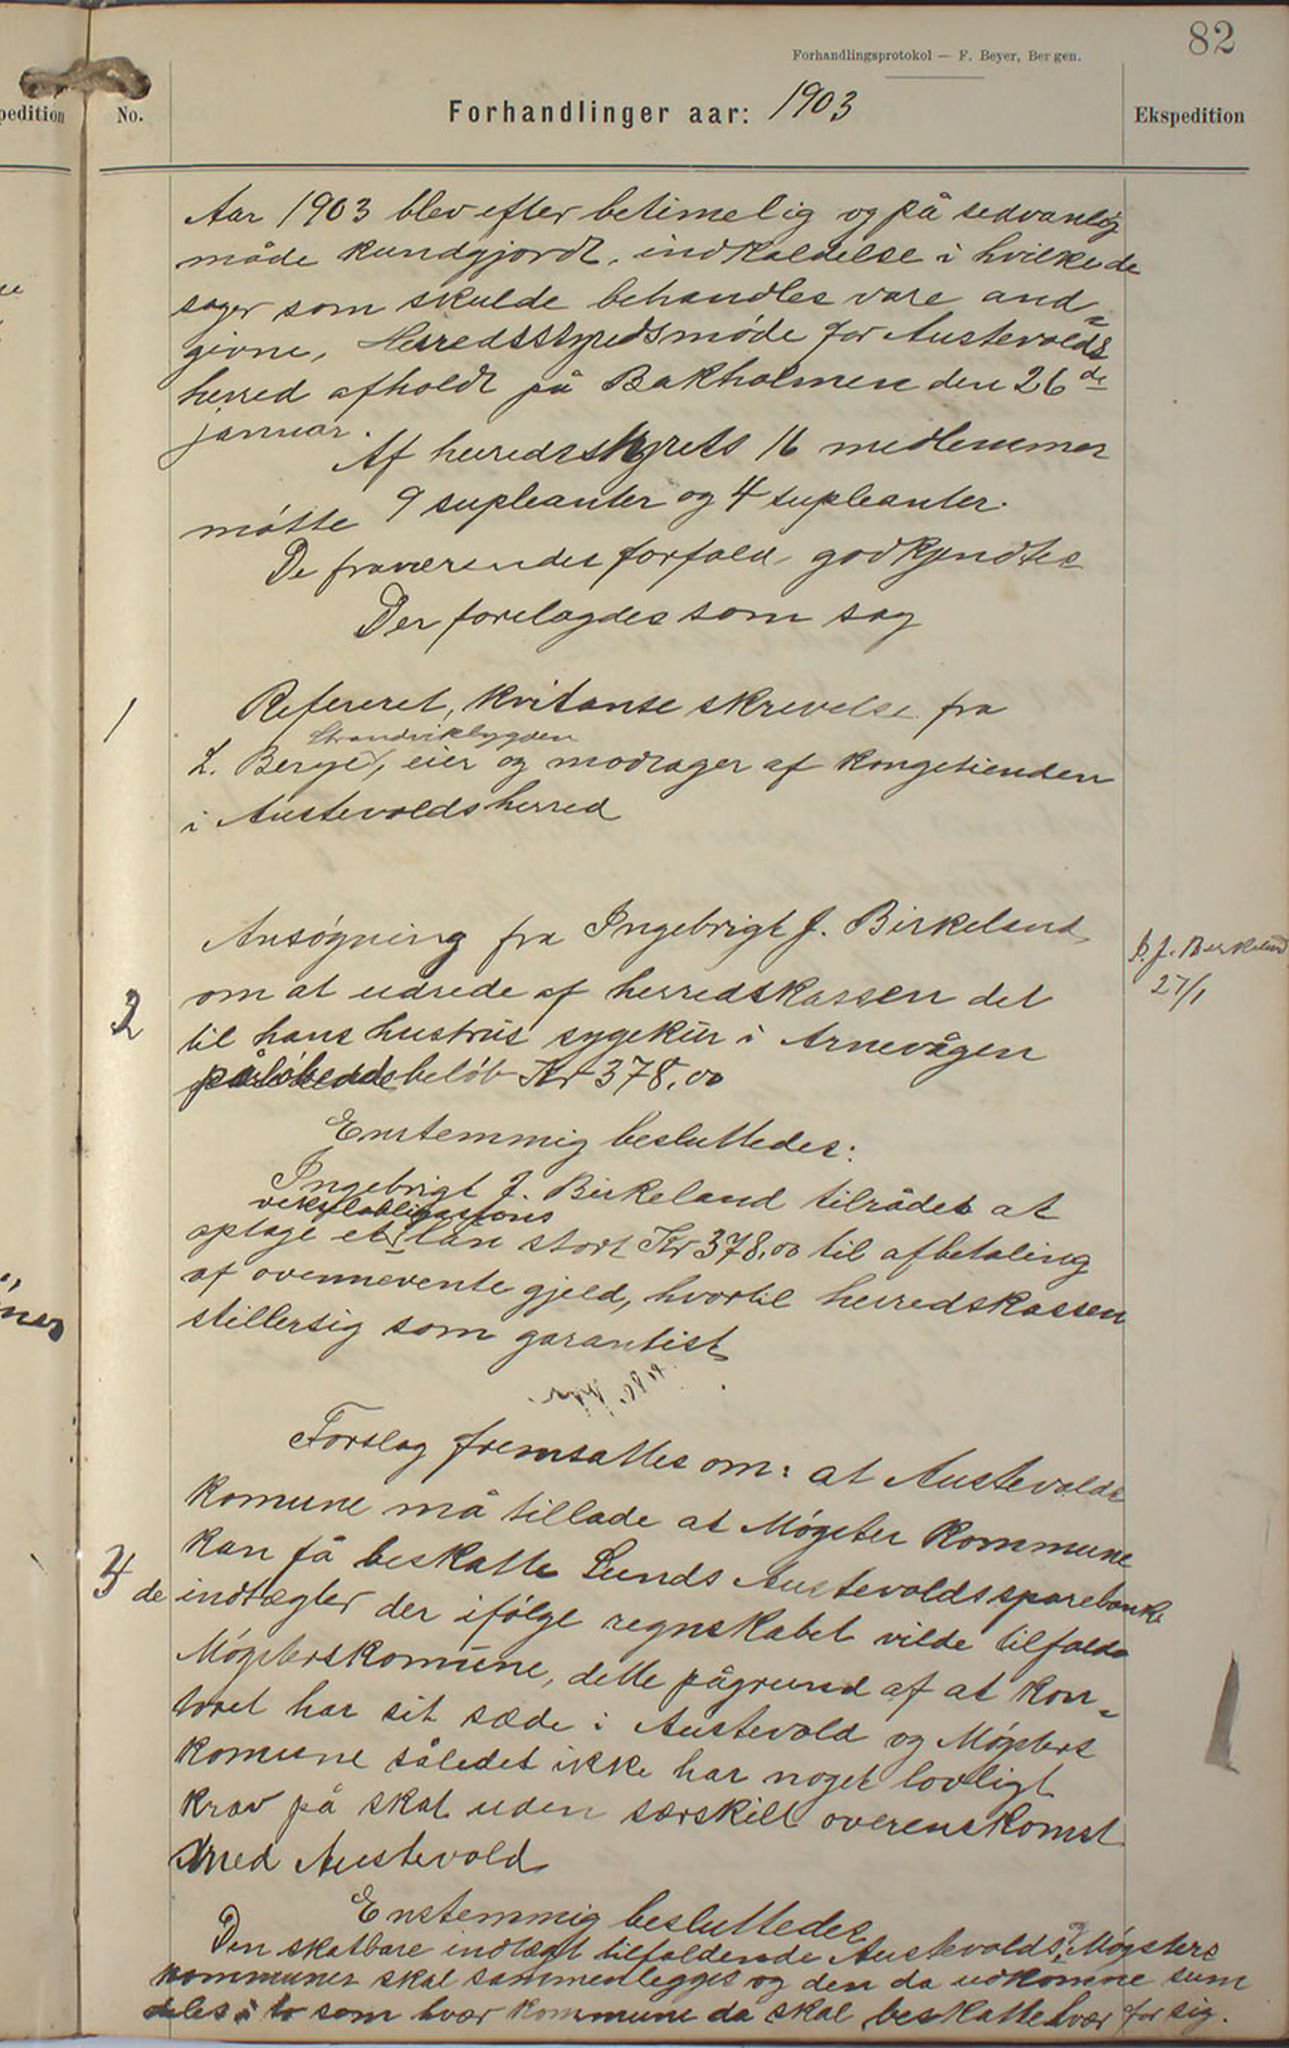 82
Forhandlingsprotokol — F. Beyer, Bergen.
pedition
No.
Forhandlinger aar: 1903
Ekspedition
Aar 1903 blev efter betimelig og på sedvanlig
måde kundgjordt, indkaldelse i hvilke de
sager som skulde behandles vare and-
givne, Herredsstyredsmøde for Austevolds
herred afholdt på Bakholmen den 26de
januar.
Af herredsstyrets 16 medlemmer
møtte 9 supleanter og 4 supleanter.
De fraværendes forfald godkjendtes
Der forelagdes som sag
1
Refereret, kvitanse skrevelse fra
Strandvikbygden
L. Berge, eier og modtager af kongetienden
i Austevoldsherred
2
Ansøgning fra Ingebrigt J. Birkeland
om at udrede af herredskassen det
til hans hustrus sygekur i Arnevågen
påløbende beløb Kr 378.00
I. J. Birkeland
27/1
Enstemmig besluttedes:
Ingebrigt J. Birkeland tilrådes at
vekselobligasjons
optage et lån stort Kr 378,00 til afbetaling
af ovennevente gjeld, hvortil herredskassen
stillersig som garantist
Forslag fremsattes om: at Austevolds
komune må tillade at Møgster kommune
kan få beskatte Sunds Austevoldssparebanks
de indtægter der ifølge regnskabet vilde tilfalde
Møgsterskomune, dette pågrund af at kon-
toret har sit sæde i Austevold og Møgsters
komune således ikke har noget lovligt
krav på skat uden særskilt overenskomst
med Austevold
Enstemmig besluttedes
Den skatbare indtægt tilfaldende Austevolds og Møgsters
kommuner skal sammenlegges og den da udkomne sum
deles i to som hvær kommune da skal beskatte hvær for sig.